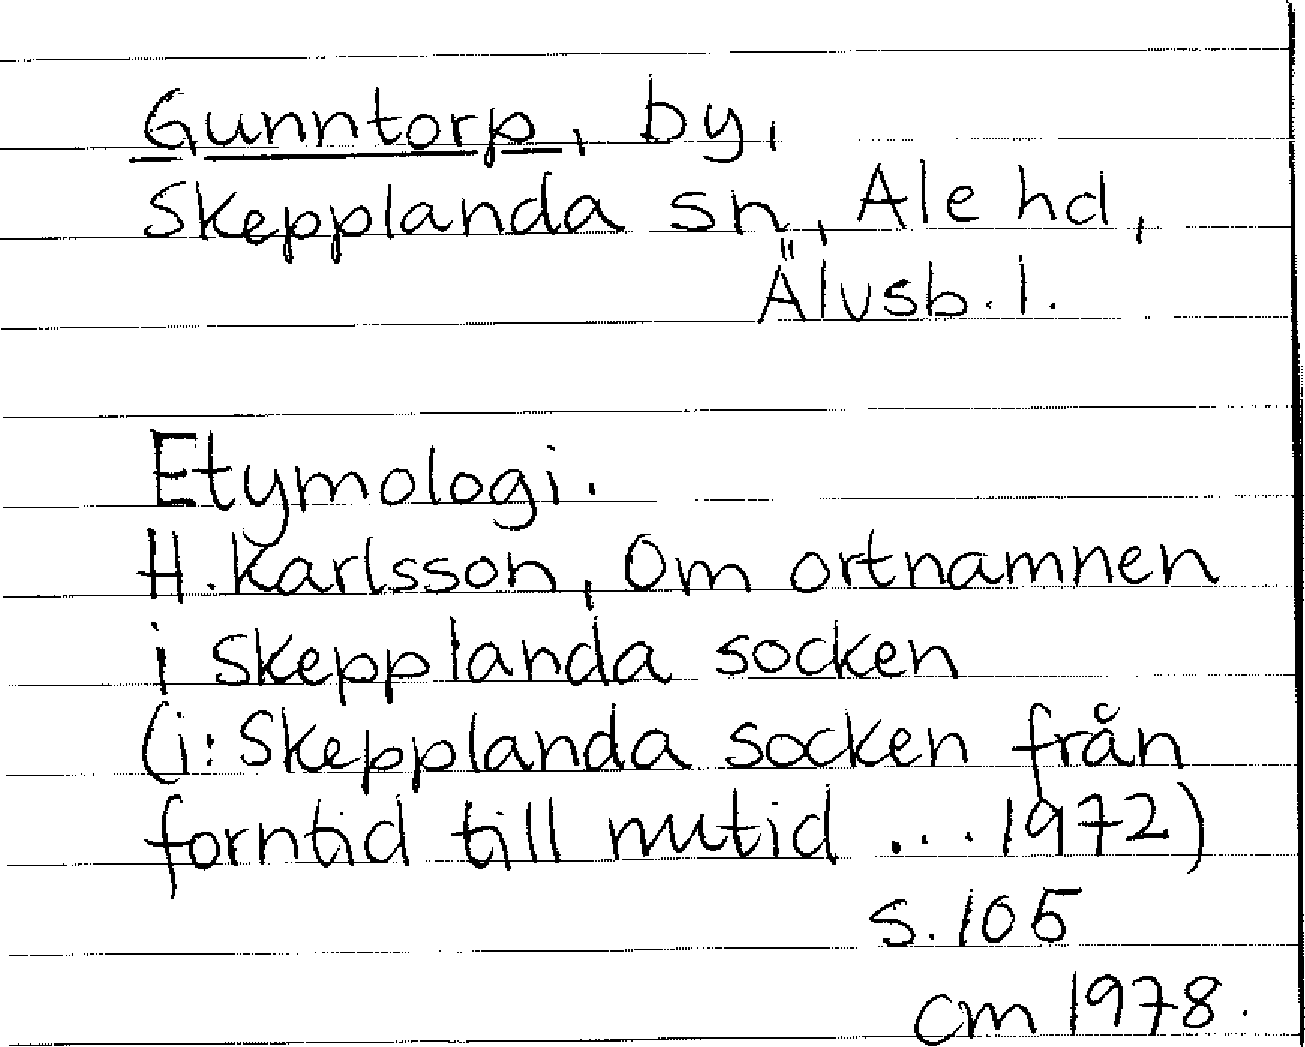 Gunntorp, by,
Skepplanda sn, Ale hd,
Älvsb. l.
Etymologi.
H. Karlsson, Om ortnamnen
i Skepplanda socken
(i: Skepplanda socken från
forntid till nutid ... 1972)
s. 105
cm 1978.